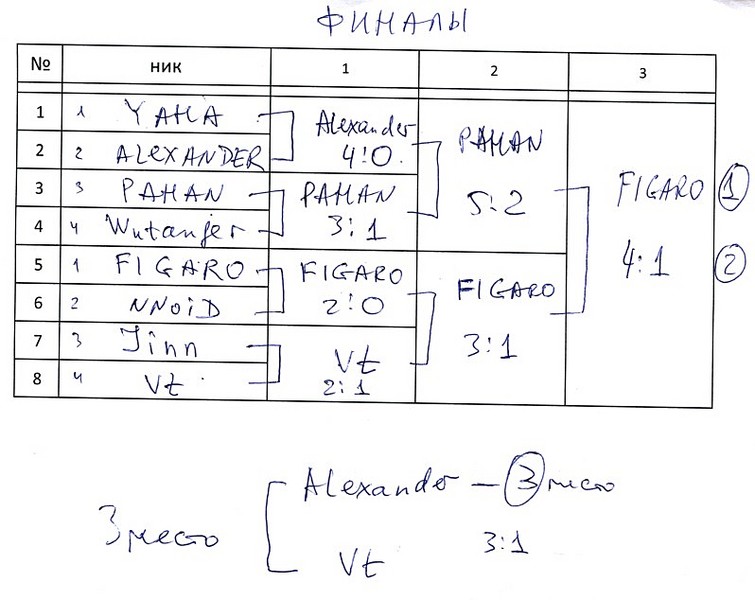 ФИНАЛЫ
№ НИК 1 2 3
1 1 YAHA
2 2 ALEXANDER
3 3 PAHAN
4 4 Wutanger
5 1 FIGARO
6 2 NNOiD
7 3 Jinn
8 4 Vt
Alexander
4:0
PAHAN
3:1
FIGARO
2:0
Vt
2:1
PAHAN
5:2
FIGARO
3:1
FIGARO 1
4:1 2
3 место
Alexander – 3 место
3:1
Vt